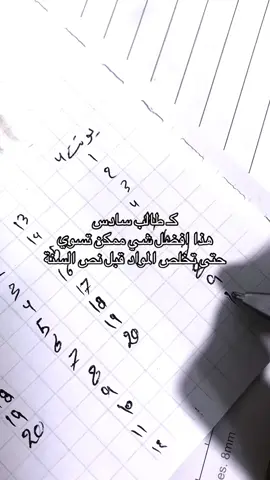 كـ طالب سادس
هذا إفضل شي ممكن تسوي
حتى تخلص المواد قبل نص السنة
1
2
3
4
13
14
16
17
18
19
20
3
4
5
6
7
8
9
10
11
12
9
18
19
20
es. 8mm